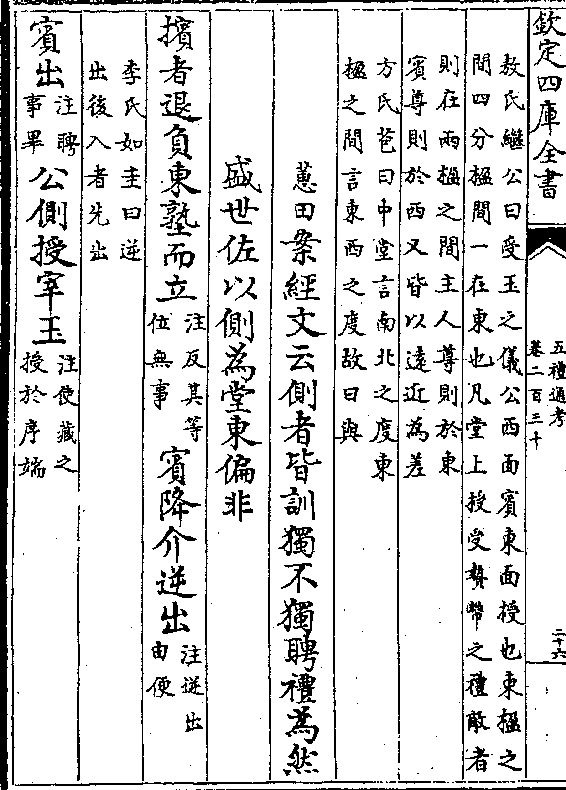 欽定四庫全書
五禮通考
卷二百三十
二十六
敖氏繼公曰受玉之儀公西面賓東面授也東楹之
間四分楹間一在東也凡堂上授受贄幣之禮敵者
則在兩楹之間主人尊則於東
賓尊則於西又皆以遠近為差
方氏苞曰中堂言南北之度東
楹之間言東西之度故曰與
蕙田案經文云側者皆訓獨不獨聘禮為然
盛世佐以側為堂東偏非
擯者退負東塾而立注反其等位無事賓降介逆出注逆出由便
李氏如圭曰逆
出後入者先出
賓出注聘事畢公側授宰玉注使藏之授於序端